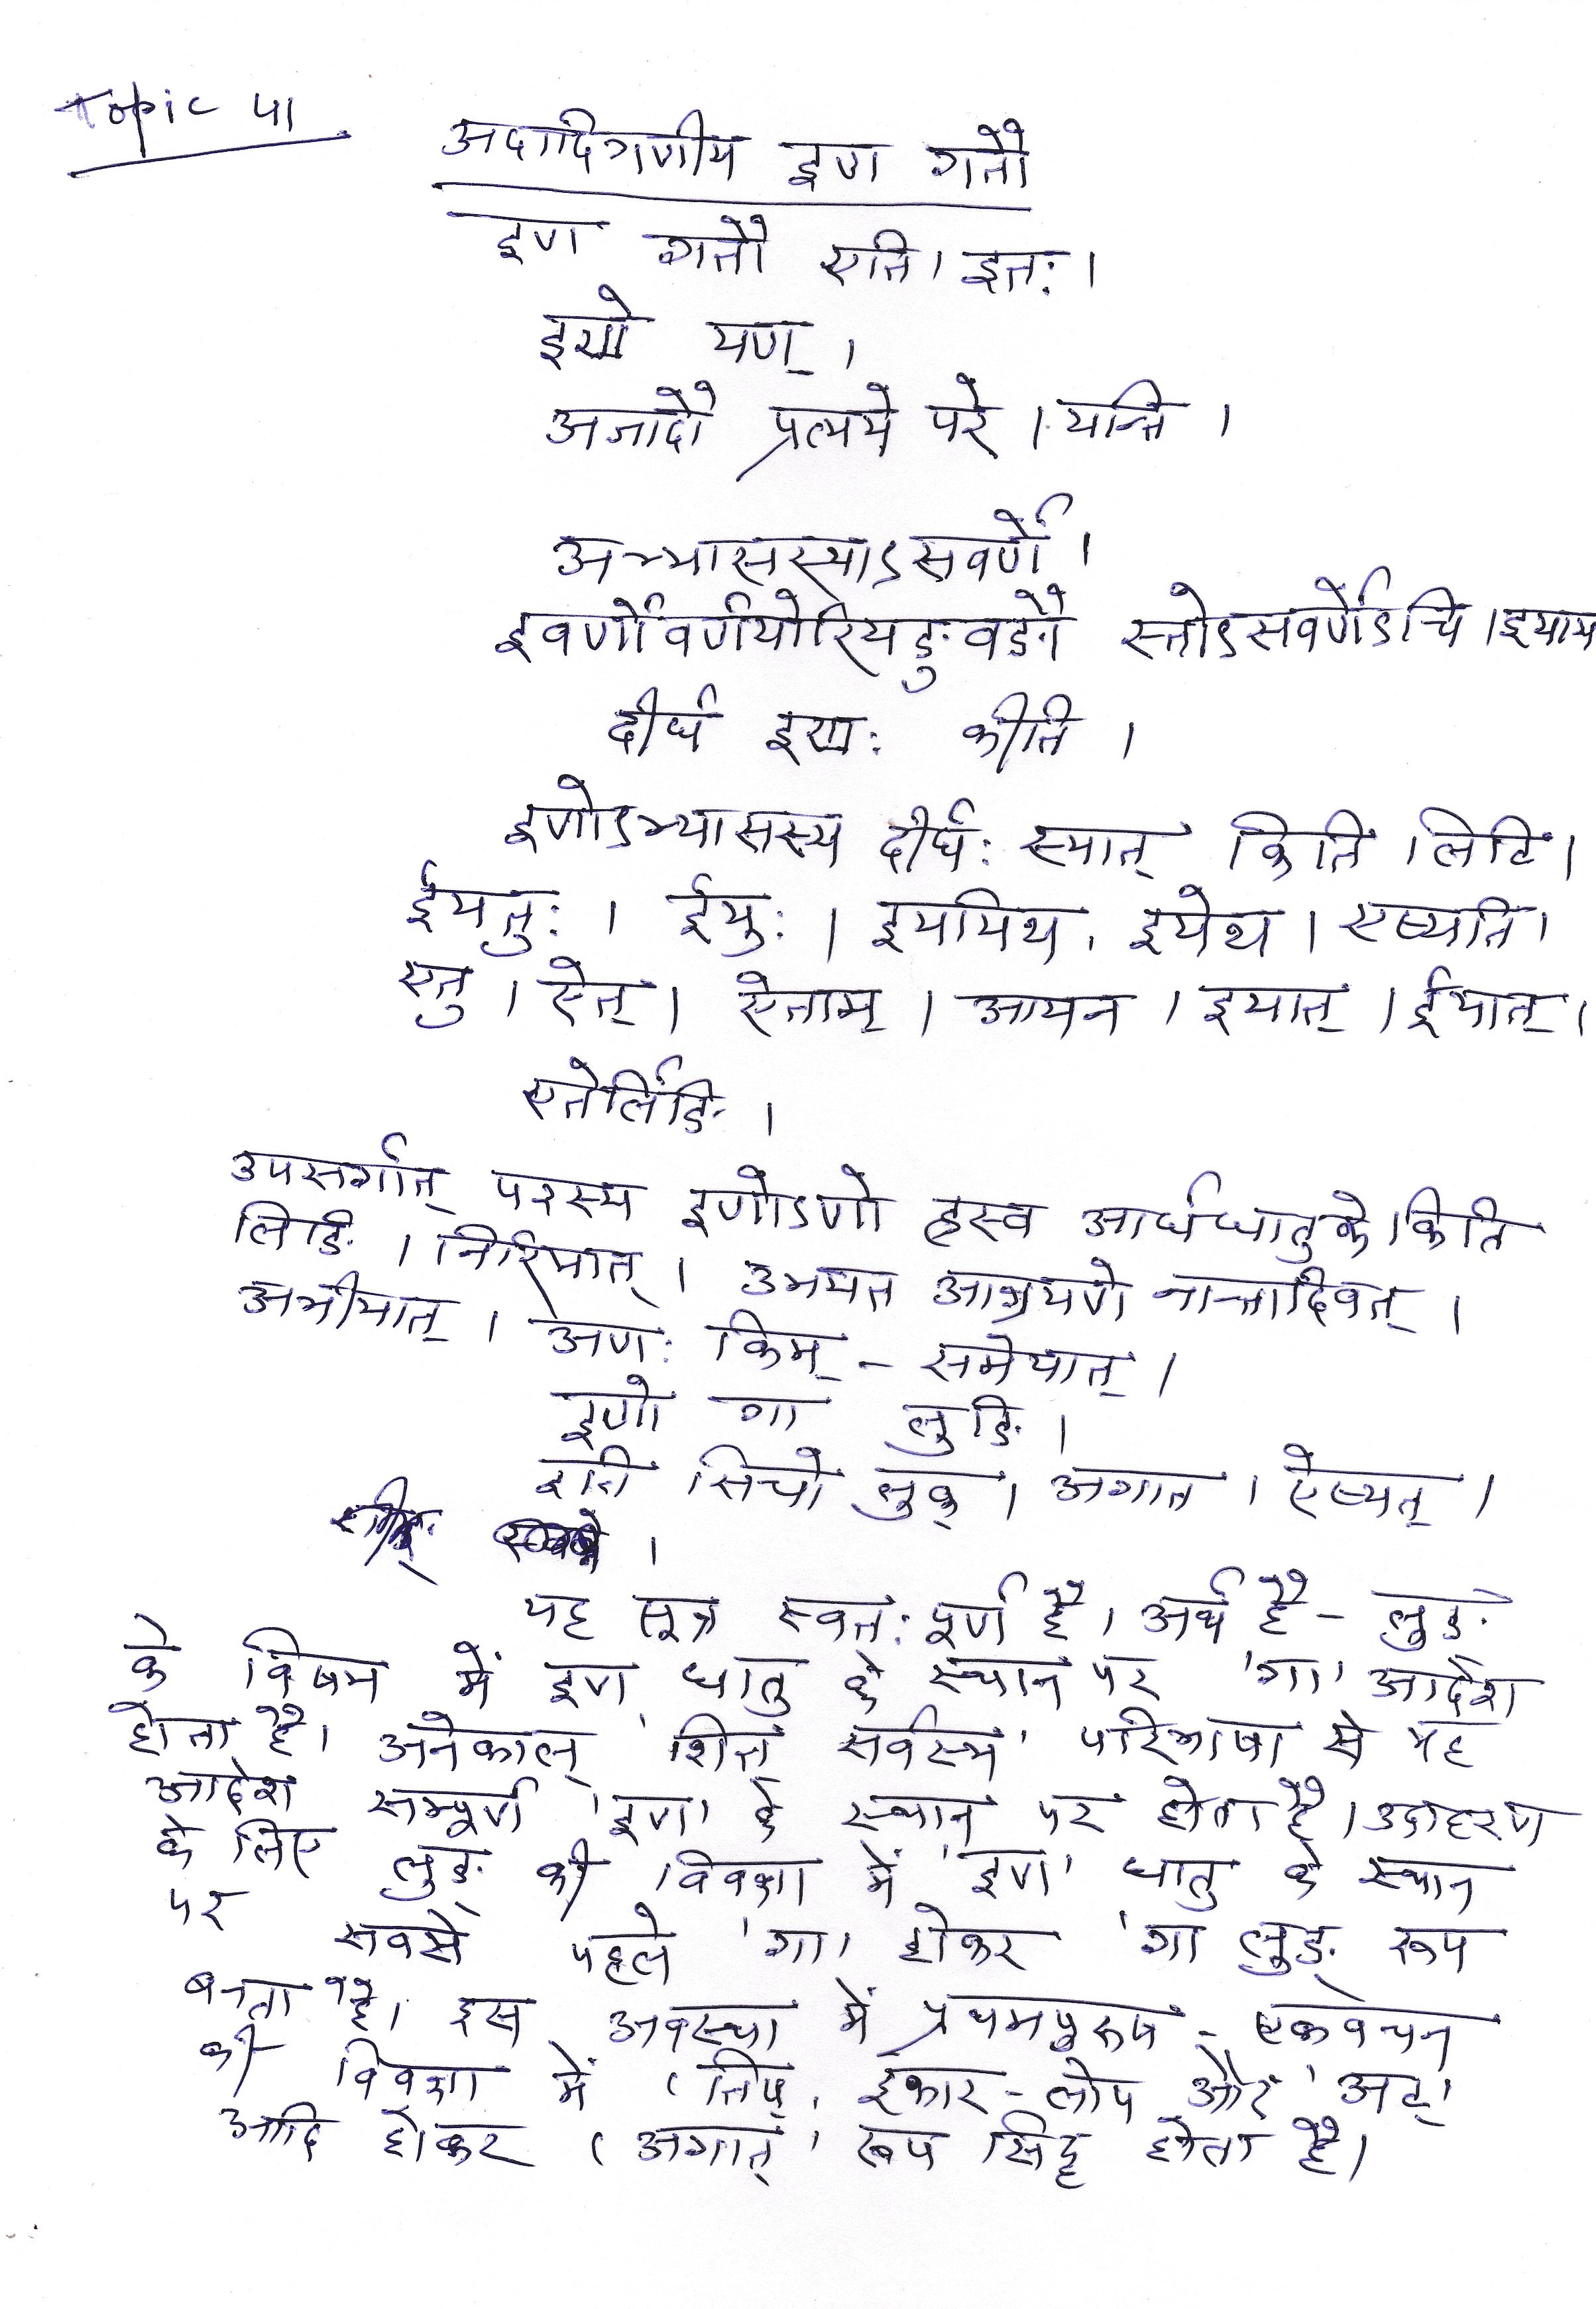 Topic 41
अदादिगणीय इण गतौ
इण गतौ एति। इतः।
इणो यण्।
अजादौ प्रत्यये परे। यन्ति।
अभ्यासस्याऽसवर्णे।
इवर्णोवर्णयोरियङुवङौ स्तोऽसवर्णेऽचि। इयाय
दीर्घ इणः कीति।
इणोऽभ्यासस्य दीर्घः स्यात् किति लिटि।
ईयतुः। ईयुः। इययिथ, इयेथ। एष्यति।
एतु। ऐत्। ऐताम्। आयन। इयात्। ईयात्।
एतेर्लिङि।
उपसर्गात् परस्य इणोऽणो ह्रस्व आर्धधातुके किति
लिङि। निरियात्। उभयत आश्रयणे नान्तादिवत्।
अभीयात्। अणः किम् - समेयात्।
इणो गा लुङि।
सिचो लुक्। अगात। ऐष्यत्।
यह सूत्र स्वतः पूर्ण है। अर्थ है - लुङ्
के विषय में इण् धातु के स्थान पर 'गा' आदेश
होता है। अनेकाल् शित् सर्वस्य' परिभाषा से यह
आदेश सम्पूर्ण 'इण' के स्थान पर होता है। उदाहरण
के लिए लुङ् की विवक्षा में 'इण' धातु के स्थान
पर सबसे पहले 'गा' होकर 'गा लुङ् रूप
बनता है। इस अवस्था में प्रथमपुरुष - एकवचन
की विवक्षा में 'तिप्, इकार-लोप और 'अट्'
आदि होकर 'अगात्' रूप सिद्ध होता है।